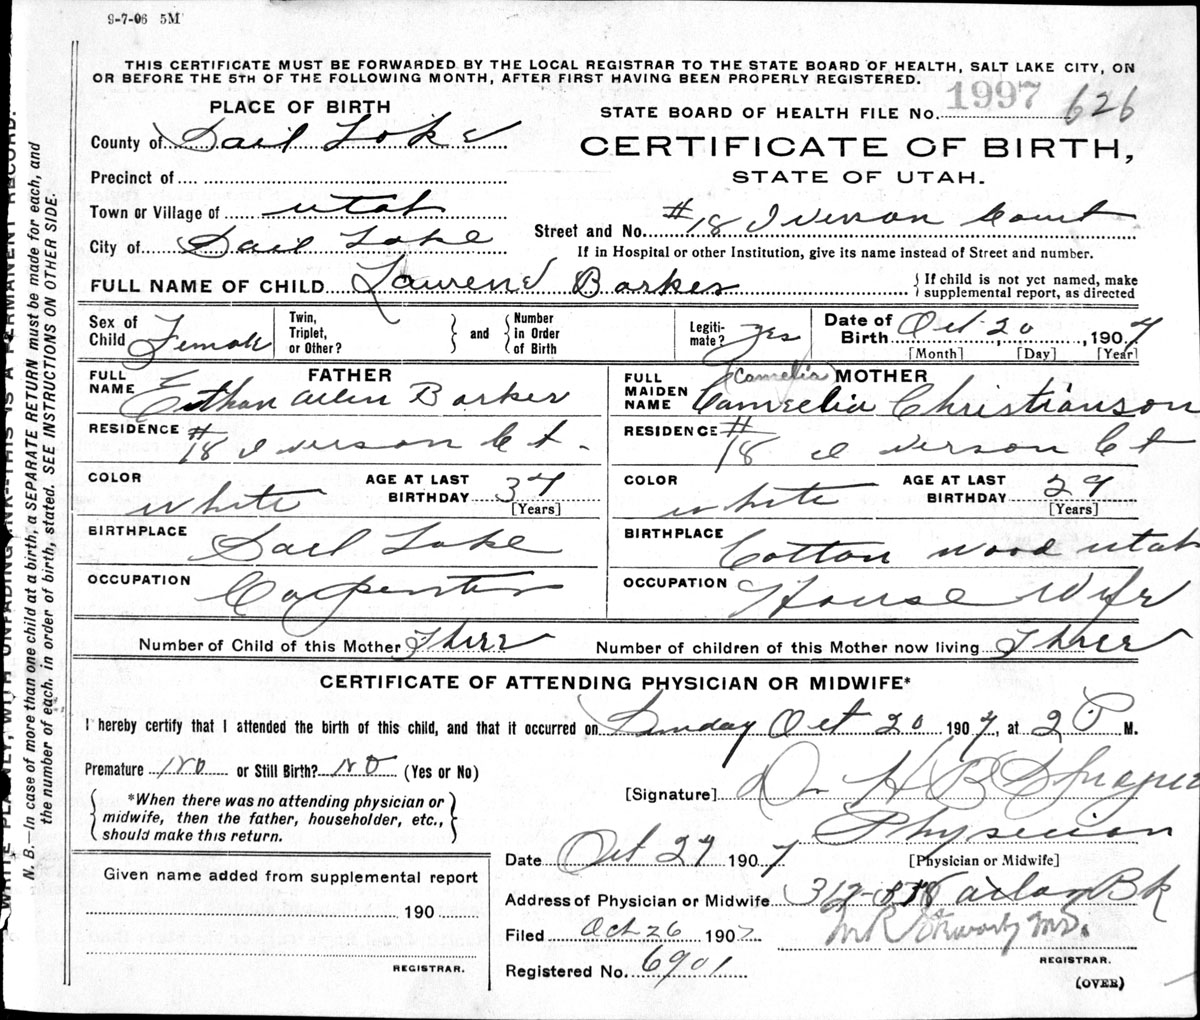 9-7-06 5M
THIS CERTIFICATE MUST BE FORWARDED BY THE LOCAL REGISTRAR TO THE STATE BOARD OF HEALTH, SALT LAKE CITY, ON
OR BEFORE THE 5TH OF THE FOLLOWING MONTH, AFTER FIRST HAVING BEEN PROPERLY REGISTERED.
PLACE OF BIRTH
STATE BOARD OF HEALTH FILE NO. 1997 626
County of Salt Lake
CERTIFICATE OF BIRTH,
STATE OF UTAH.
Precinct of
Town or Village of Utah
Street and No. #18 Iverson Court
City of Salt Lake
If in Hospital or other Institution, give its name instead of Street and number.
FULL NAME OF CHILD Barker
{ If child is not yet named, make
supplemental report, as directed
Sex of
Child Female
Twin,
Triplet,
or Other?
} and {
Number
in Order
of Birth
Legiti-
mate? yes
Date of
Birth Oct. 20, 1907
[Month] [Day] [Year]
FATHER
FULL
NAME Ethan Allen Barker
(Camelia) MOTHER
FULL
MAIDEN
NAME Camelia Christianson
RESIDENCE #18 Iverson Ct.
RESIDENCE #18 Iverson Ct
COLOR White
AGE AT LAST
BIRTHDAY 34
[Years]
COLOR White
AGE AT LAST
BIRTHDAY 29
[Years]
BIRTHPLACE Salt Lake
BIRTHPLACE Cotton wood Utah
OCCUPATION Carpenter
OCCUPATION House Wife
Number of Child of this Mother Three
Number of children of this Mother now living Three
CERTIFICATE OF ATTENDING PHYSICIAN OR MIDWIFE*
I hereby certify that I attended the birth of this child, and that it occurred on Sunday Oct 20 1907, at 2 P M.
Premature No or Still Birth? No (Yes or No)
[Signature] Dr H B Sprague
{ *When there was no attending physician or
midwife, then the father, householder, etc.,
should make this return. }
Physician
[Physician or Midwife]
Date Oct 27 1907
Given name added from supplemental report
190
REGISTRAR.
Address of Physician or Midwife
Filed Oct 26 1907
REGISTRAR.
Registered No. 6901
(OVER)
WRITE PLAINLY, WITH UNFADING INK--THIS IS A PERMANENT RECORD.
N. B.—In case of more than one child at a birth, a SEPARATE RETURN must be made for each, and
the number of each, in order of birth, stated. SEE INSTRUCTIONS ON OTHER SIDE.